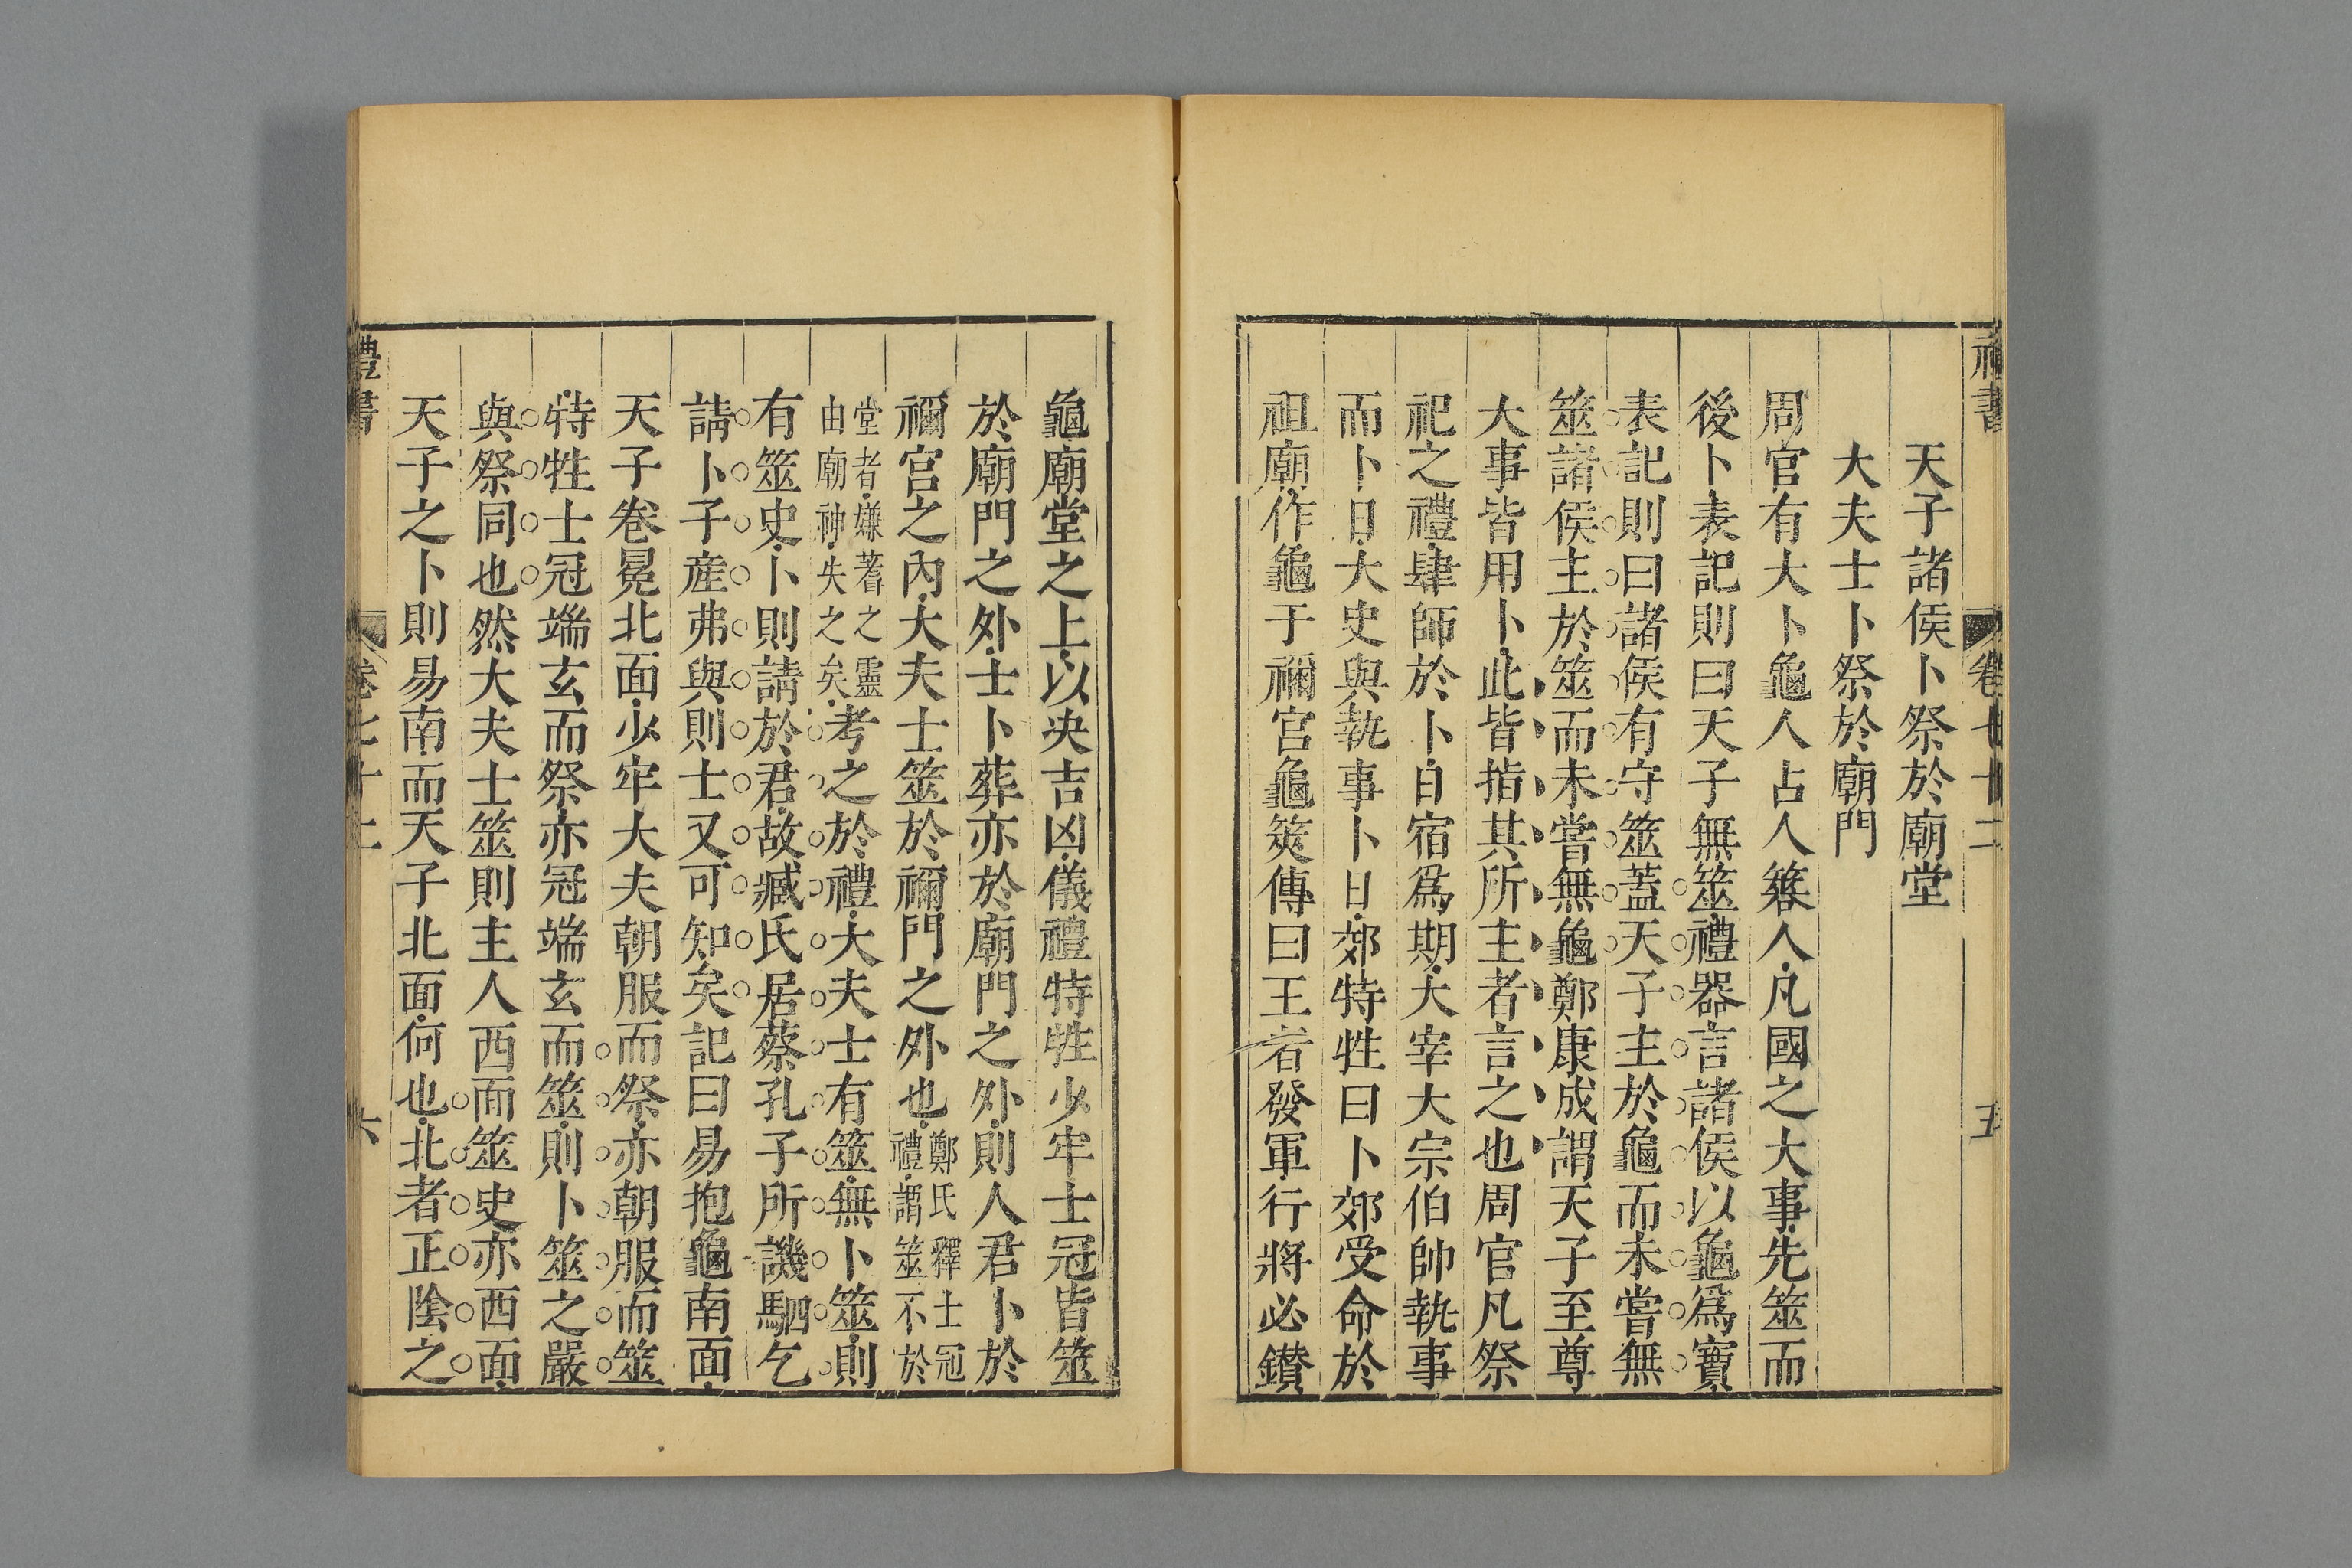 禮書
卷七十二
五
天子諸侯卜祭於廟堂
大夫士卜祭於廟門
周官有大卜龜人占人簭人凡國之大事先筮而
後卜表記則曰天子無筮禮器言諸侯以龜爲寶
表記則曰諸侯有守筮蓋天子主於龜而未嘗無
筮諸侯主於筮而未嘗無龜鄭康成謂天子至尊
大事皆用卜此皆指其所主者言之也周官凡祭
祀之禮肆師於卜日宿爲期大宰大宗伯帥執事
而卜日大史與執事卜日郊特牲曰卜郊受命於
祖廟作龜于禰宮龜筴傳曰王者發軍行將必鑚
龜廟堂之上以决吉凶儀禮特牲少牢士冠皆筮
於廟門之外士卜葬亦於廟門之外則人君卜於
禰宮之內大夫士筮於禰門之外也鄭氏釋士冠
禮謂筮不於
堂者嫌蓍之靈
由廟神失之矣考之於禮大夫士有筮無卜筮則
有筮史卜則請於君故臧氏居蔡孔子所譏駟乞
請卜子産弗與則士又可知矣記曰易抱龜南面
天子卷冕北面少牢大夫朝服而祭亦朝服而筮
特牲士冠端玄而祭亦冠端玄而筮則卜筮之嚴
與祭同也然大夫士筮則主人西面筮史亦西面
天子之卜則易南而天子北面何也北者正陰之
禮書
卷七十二
六